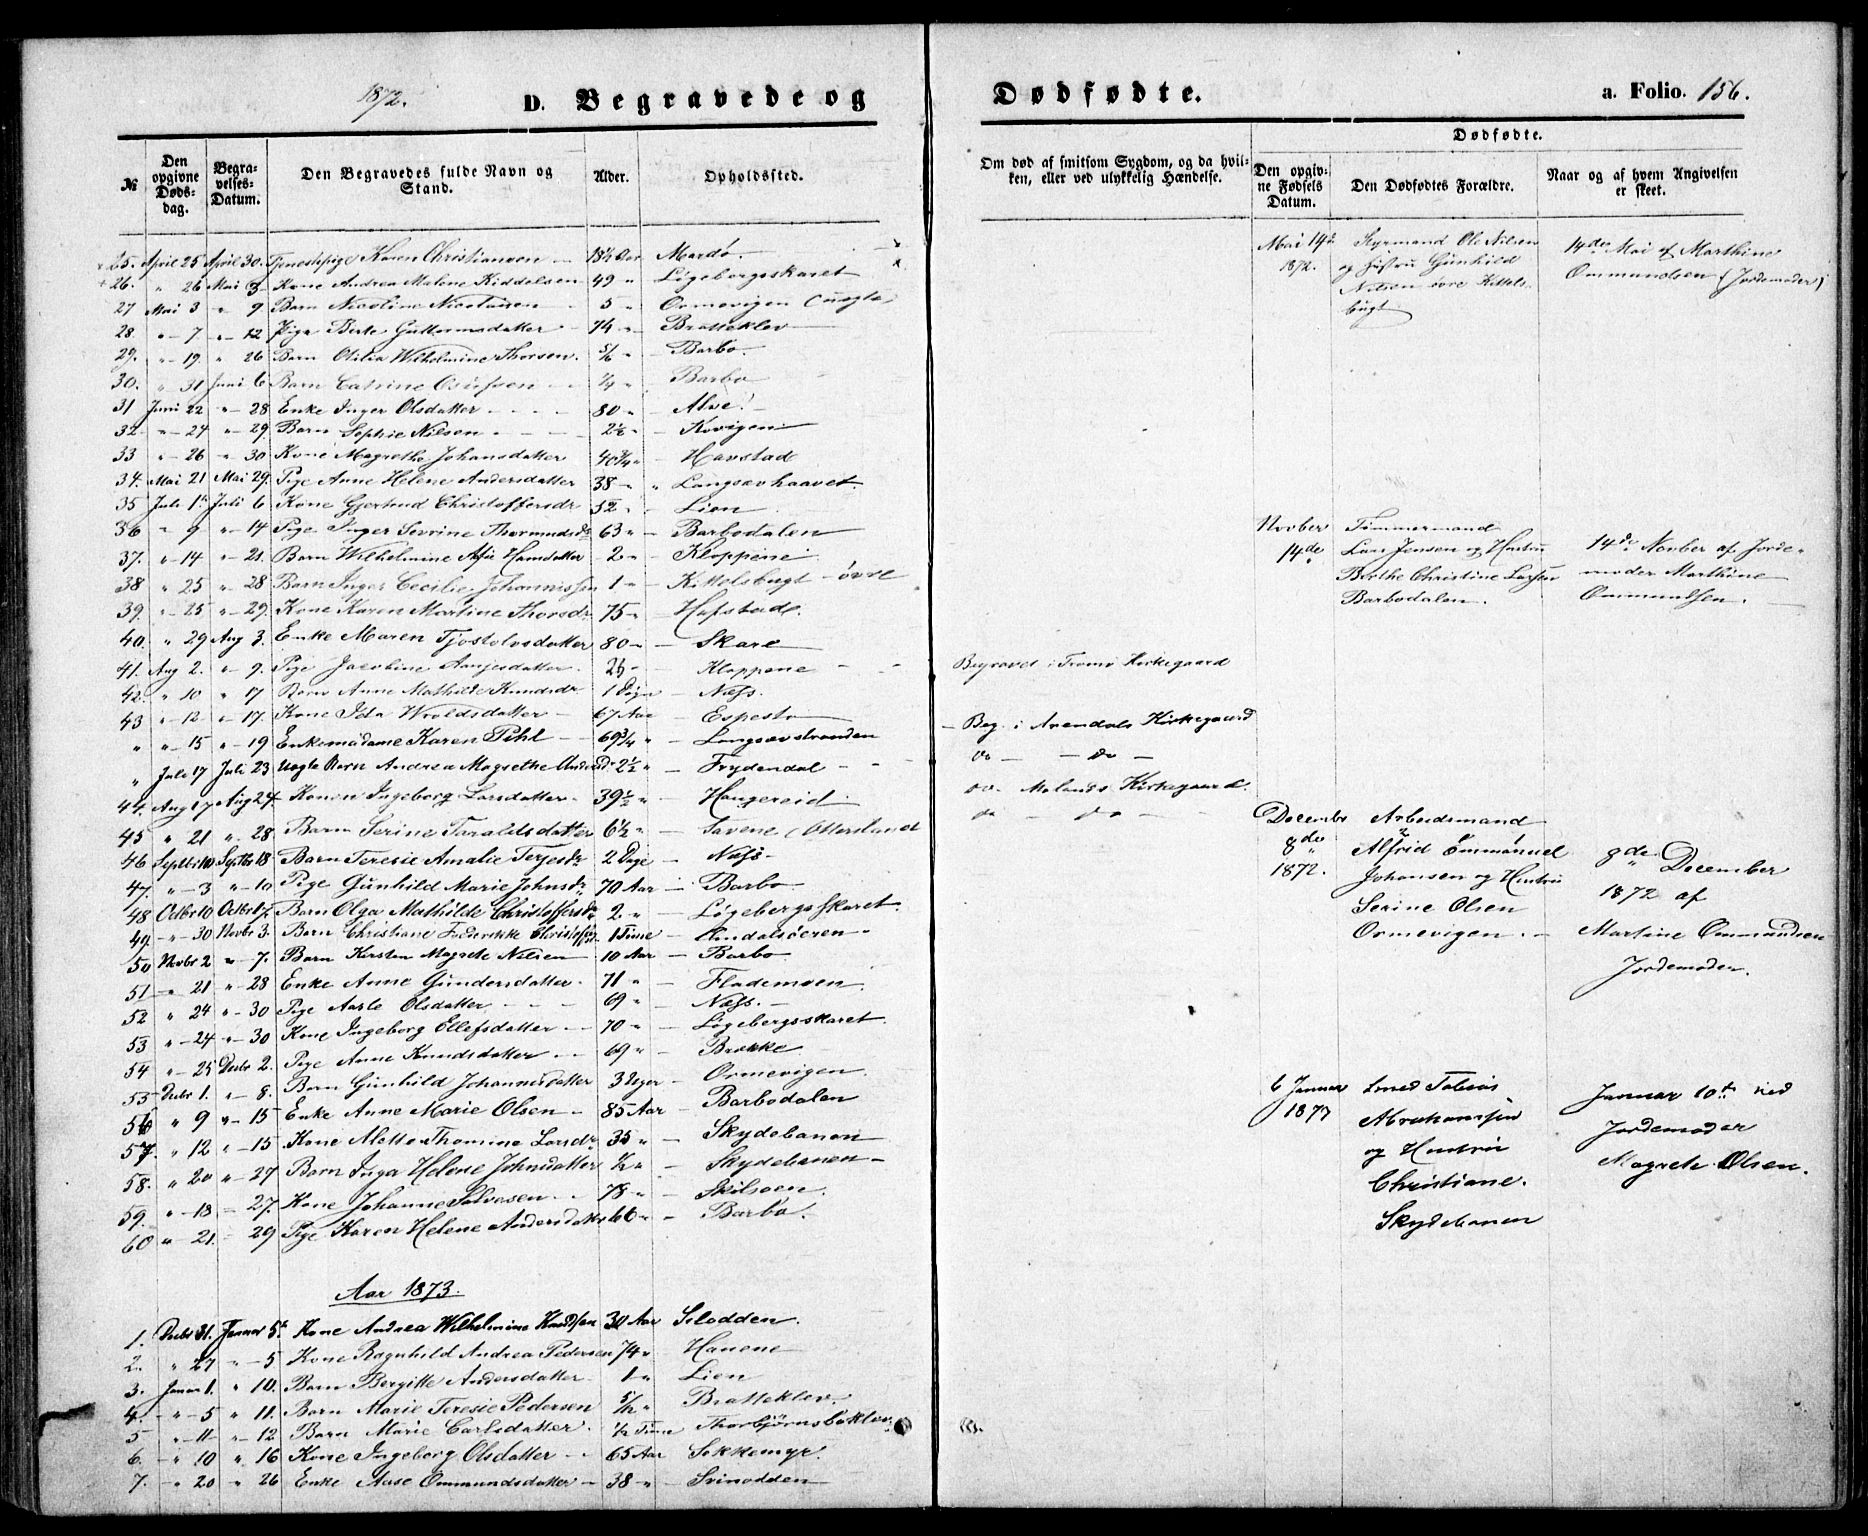 1872.
D. Begravede og
Dødfødte.
a. Folio. 156.
№
Den opgivne Døds-dag.
Begra-velses-Datum.
Den Begravedes fulde Navn og Stand.
Alder.
Opholdsted.
Om død af smitsom Sygdom, og da hvil-ken, eller ved ulykkelig Hændelse.
Dødfødte.
Den opgiv-ne Fødsels Datum.
Den Dødfødtes Forældre.
Naar og af hvem Angivelsen er skeet.
25. April 25 April 30. Tjenestepige Karen Christiansen — 18½ Aar — Mardø.
26. " 26 Mai 3 Kone Andrea Malene Kiddelsen 49 " — Løgebergsskaret
27 Mai 3 " 9 Barn Nicoline Nicolaisen — 5 " Ormevigen (uægte)
28. " - 7 " - 12 Pige Berte Guttormsdatter — 74 " — Bratteklev
29. " - 19. " 26 Barn Otilia Wilhelmine Thorsen. 5/6 " — Barbo.
30. " 31 Juni 6 Barn Catrine — ¼ " — Barbo
31 Juni 22 " - 28 Enke Inger Olsdatter - - - 80 " — Alve.
32. " - 24 " - 29. Barn Sophie Nilsen - - - 2½ " — Kovigen
33 " - 26 " 30 Kone Magrethe Johansdatter 40¾ " — Havstad
34. Mai 21 Mai 29. Pige Anne Helene Andersdatter 38 - " " Langsævhaavet.
35 Juli 1ste Juli 6 Kone Gjertrud Christoffersdr 52 - " — Lien
36 " 9 " - 14 Pige Inger Sevrine Thormundsdr 63 " — Barbodalen
37. " - 14 " - 21. Barn Wilhelmine Hansdatter - 2 - " — Kloppene.
38 " 25 " - 28 Barn Inger Cecilie Johannissen 1 " — Kittelsbugt - øvre
39. " - 25 " - 29. Kone Karen Martine Thorsdr 75 - " — Hafstad.
40. " 29 Aug 3. Enke Maren Tjostolvsdatter 80 - " — Skare
41. Aug 2. " - 9. Pige Jacobine — Kloppene - -
42. " 10 " 17 Barn Anne Mathilde Knudsdr 1 Døgn — Næss.
43 " - 12 " - 17. Kone Ida Wroldsdatter — 67 Aar — Espestø
" " - 15 " - 19 Enkemadame Karen Pihl — 69¾ " — Langsævstranden
" Juli 17 Juli 23 Uægte Barn Andrea Magrethe Andersdr 2½ " — Frydendal - -
44. Aug 17 Aug 24 Konen Ingeborg Larsdatter. 39½ " — Haugereid.
45 " 21 " 28 Barn Serine Taraldsdatter 6½ " — Savene (Otterslund
46 Septbr 10 Septbr 18 Barn Teresie Amalie Terjesdr 2 Dage — Næss -
47. " - 3 " - 10 Pige Gunhild Marie Johnsdr 70 Aar — Barbo
48 Octbr 10 Octbr 17. Barn Olga Mathilde Christoffersdr 2. " — Løgebergsskaret.
49. " - 30 Novbr 3. Barn Christiane Frederikke 1 Time —
50 Novbr 2 " - 7. Barn Kirsten Magrete Nilsen — 10 Aar — Barbo
51 " 21 " - 28 Enke Anne Gundersdatter - 71 " — Flademoen
52 " 24 " - 30 Pige Aasle Olsdatter - - - 69 " — Næss. -
53 " - 24 " - 30 Kone Ingeborg Ellefsdatter - - 70 " — Løgebergsskaret
54 " - 25 Decbr 2. Pige Anne Knudsdatter - - 69 " — Brække
55 Decbr 1. " - 8. Barn Gunhild Johannesdatter 3 Uger — Ormevigen
56 " 9 " - 15 Enke Anne Marie Olsen - 85 Aar — Barbodalen
57. " 12 " - 15 Kone Alette Thomine Larsdr 35 " — Skydebanen
58. " 20 " - 27 Barn Inga Helene Johnsdatter ½ " — Skydebanen -
59. " - 18 - 27. Kone Johanne Salvesen - - 78 " — Skilsøen.
60 " - 21. - 29 Pige Karen Helene Andersdatter 66 " — Barbo.
Aar 1873.
1. Decbr 31. Januar 5te Kone Andrea Wilhelmine Knudsen 30 Aar Slodden.
2. " 27 " - 5 Kone Ragnhild Andrea Pedersen 74 " Hanene
3. Januar 1. " 10. Barn Bergitte Andersdatter. 1 " Lien
4. " - 5 " 11. Barn Marie Teresie Pedersen 5/12 " Bratteklev.
5 " - 11 " - 12. Barn Marie Carlsdatter. ½ Time Thorbjørnsboklev.
6. - " 10 " 16 Kone Ingeborg Olsdatter — 65 Aar Sokkemyr.
7. - " 20 " 26 Enke Aase Ommundsdatter — 38 " Svinodden
Begravet i Tromø Kirkegaard
— Beg. i Arendals Kirkegaard
do — — do —
do - Molands Kirkegaard.
do — do —
Mai 14de 1872.
Styrmand Ole Nilsen
og Hustru Gunhild
Nilsen øvre Kittels-
bugt
14de Mai af Marthine
Ommundsen (Jordemoder)
Novber 14de
Tømmermand
Lars Jensen og Hustru
Berthe Christine Larsen
Barbodalen.
14de Novber af Jorde-
moder Marthine
Ommundsen.
Decembr 8de 1872.
Arbeidsmand
Alfrid Emmanuel
Johansen og Hustru
Serine Olsen
Ormevigen. -
8de December
1872 af
Martine Ommundsen
Jordemoder.
6 Januar 1873
Smed Tobias
Abrahamsen
og Hustru
Christiane.
Skydebanen
Januar 10de ved
Jordemoder
Magrete Olsen.